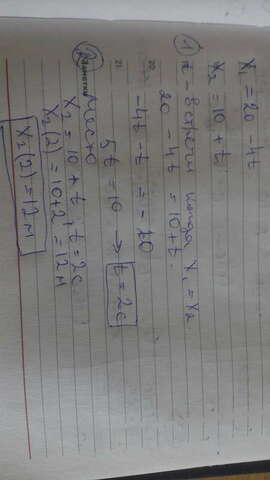 x₁ = 20 - 4t
x₂ = 10 + t
① t - встречи когда x₁ = x₂
20 - 4t = 10 + t
-4t - t = -10
5t = 10 → t = 2c
② место
x₂ = 10 + t, t = 2c
x₂(2) = 10 + 2 = 12 м
x₂(2) = 12 м